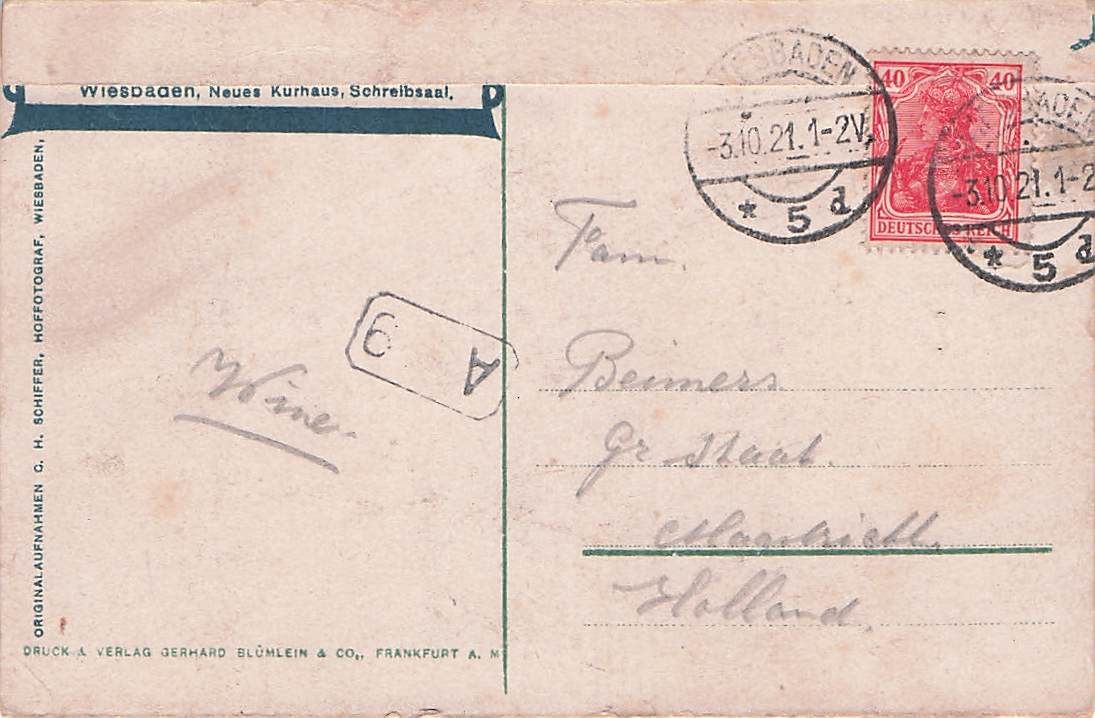 Wiesbaden, Neues Kurhaus, Schreibsaal.
ORIGINALAUFNAHMEN C. H. SCHIFFER, HOFFOTOGRAF, WIESBADEN,
DRUCK & VERLAG GERHARD BLÜMLEIN & CO., FRANKFURT A. M
WIESBADEN
-3.10.21.1-2V.
* 5 d
40 40
DEUTSCHES REICH
BADEN
-3.10.21.1-2
* 5 d
A 9
Wine.
Fam.
Beimers
Gr Staat.
Maastricht.
Holland.